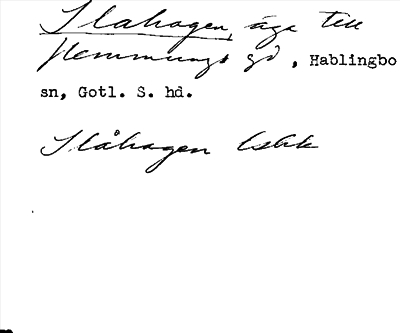 Slahagen, äga till
Flemmunge gd, Hablingbo
sn, Gotl. S. hd.
Slåhagen Estk